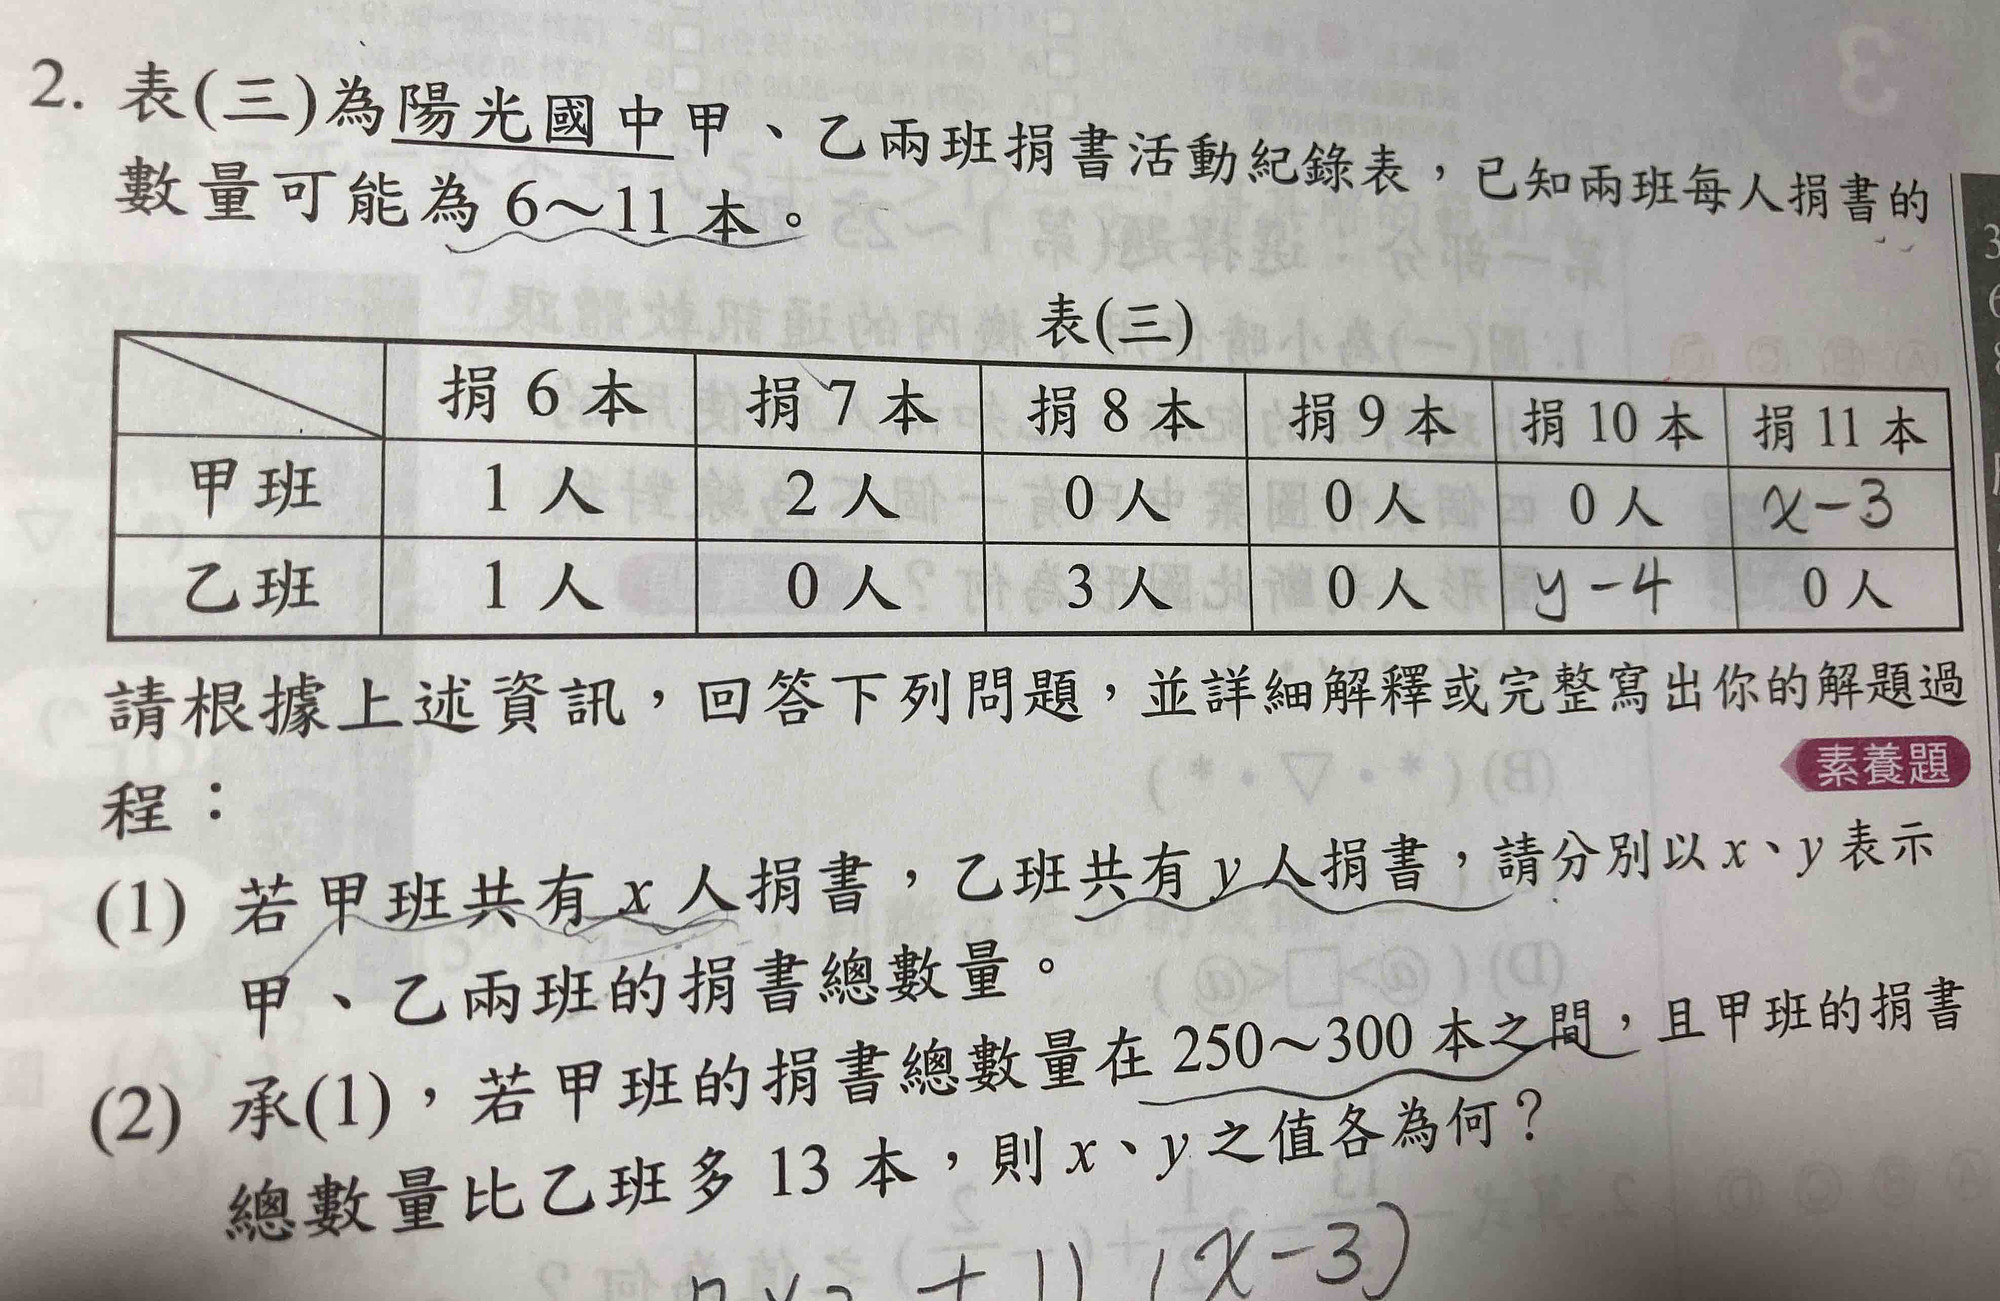 2. 表(三)為陽光國中甲、乙兩班捐書活動紀錄表，已知兩班每人捐書的
數量可能為 6～11 本。
表(三)
捐 6 本 捐 7 本 捐 8 本 捐 9 本 捐 10 本 捐 11 本
甲班 1 人 2 人 0 人 0 人 0 人 x-3
乙班 1 人 0 人 3 人 0 人 y-4 0 人
請根據上述資訊，回答下列問題，並詳細解釋或完整寫出你的解題過
程：
素養題
(1) 若甲班共有 x 人捐書，乙班共有 y 人捐書，請分別以 x、y 表示
甲、乙兩班的捐書總數量。
(2) 承(1)，若甲班的捐書總數量在 250～300 本之間，且甲班的捐書
總數量比乙班多 13 本，則 x、y 之值各為何？
+ 11 (x-3)